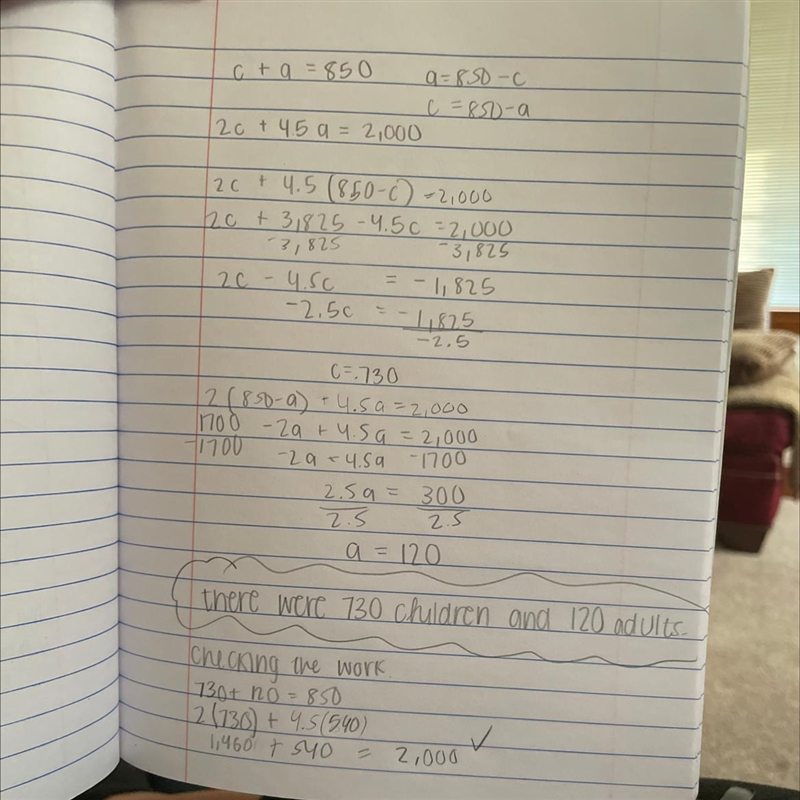 c + a = 850 a = 850 - c
c = 850 - a
2c + 4.5a = 2,000
2c + 4.5 (850 - c) = 2,000
2c + 3,825 - 4.5c = 2,000
-3,825 -3,825
2c - 4.5c = -1,825
-2.5c = -1,825
-2.5
c = .730
2(850 - a) + 4.5a = 2,000
1700 - 2a + 4.5a = 2,000
-1700 -2a + 4.5a -1700
2.5a = 300
2.5 2.5
a = 120
there were 730 children and 120 adults.
checking the work.
730 + 120 = 850
2(730) + 4.5(540)
1,460 + 540 = 2,000 ✓